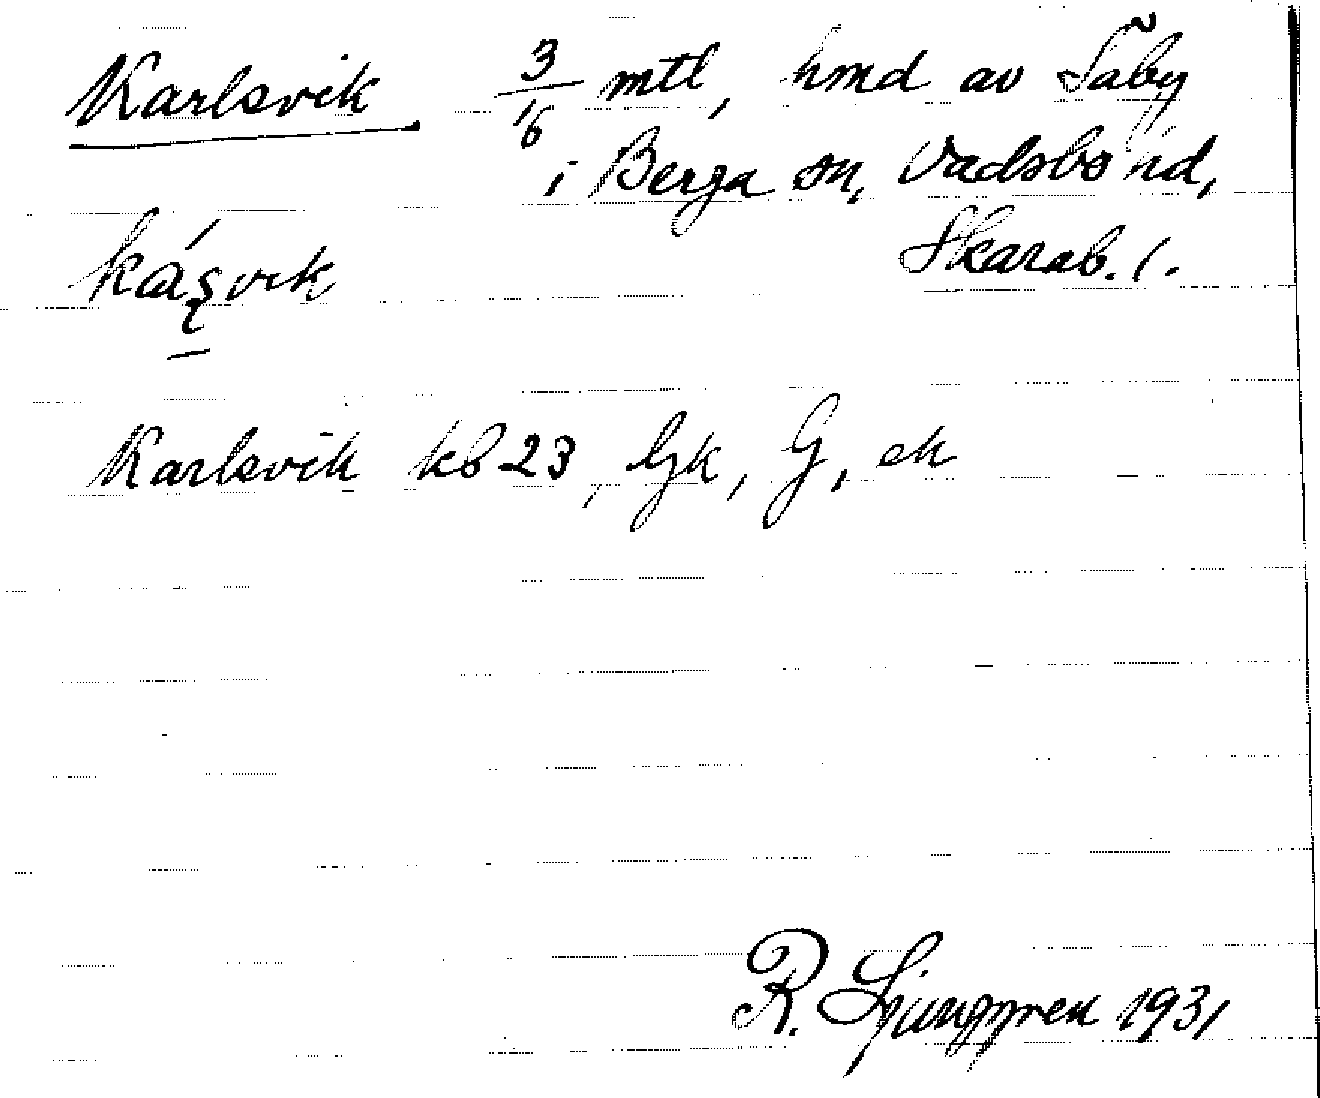 Karlsvik 3/16 mtl, hmd av Säby
i Berga sn, Vadsbo hd,
Skarab. l.
Karlsvik kb 23, Gk, G, ek
R. Ljunggren 1931